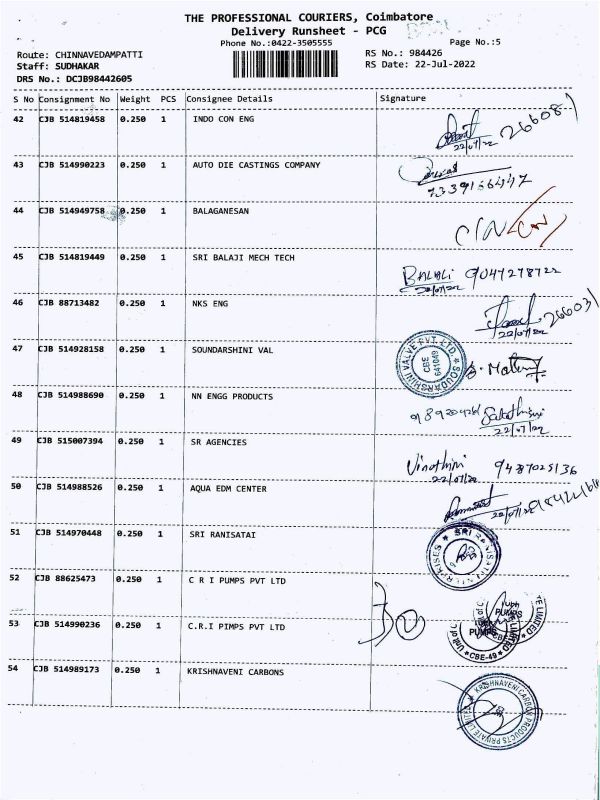 THE PROFESSIONAL COURIERS, Coimbatore
Delivery Runsheet - PCG
Phone No.:0422-3505555 Page No.:5
Route: CHINNAVEDAMPATTI RS No.: 984426
Staff: SUDHAKAR RS Date: 22-Jul-2022
DRS No.: DCJB98442605
S No Consignment No Weight PCS Consignee Details Signature
42 CJB 514819458 0.250 1 INDO CON ENG
22/07/22
43 CJB 514990223 0.250 1 AUTO DIE CASTINGS COMPANY
44 CJB 514949758 0.250 1 BALAGANESAN
45 CJB 514819449 0.250 1 SRI BALAJI MECH TECH
BALAJI 9047278722
22/07/22
46 CJB 88713482 0.250 1 NKS ENG
22/07/22
47 CJB 514928158 0.250 1 SOUNDARSHINI VAL
SOUDARSHINI VALVE PVT. LTD.
CBE
641049
48 CJB 514988690 0.250 1 NN ENGG PRODUCTS
22/07/22
49 CJB 515007394 0.250 1 SR AGENCIES
Vinothini 9487025136
22/07/22
50 CJB 514988526 0.250 1 AQUA EDM CENTER
22/07/22
51 CJB 514970448 0.250 1 SRI RANISATAI
SRI RANISATI ENTERPRISES
52 CJB 88625473 0.250 1 C R I PUMPS PVT LTD
53 CJB 514990236 0.250 1 C.R.I PIMPS PVT LTD
PUMPS
LIMITED
CBE-49
54 CJB 514989173 0.250 1 KRISHNAVENI CARBONS
KRISHNAVENI CARBON PRODUCTS PRIVATE LIMITED